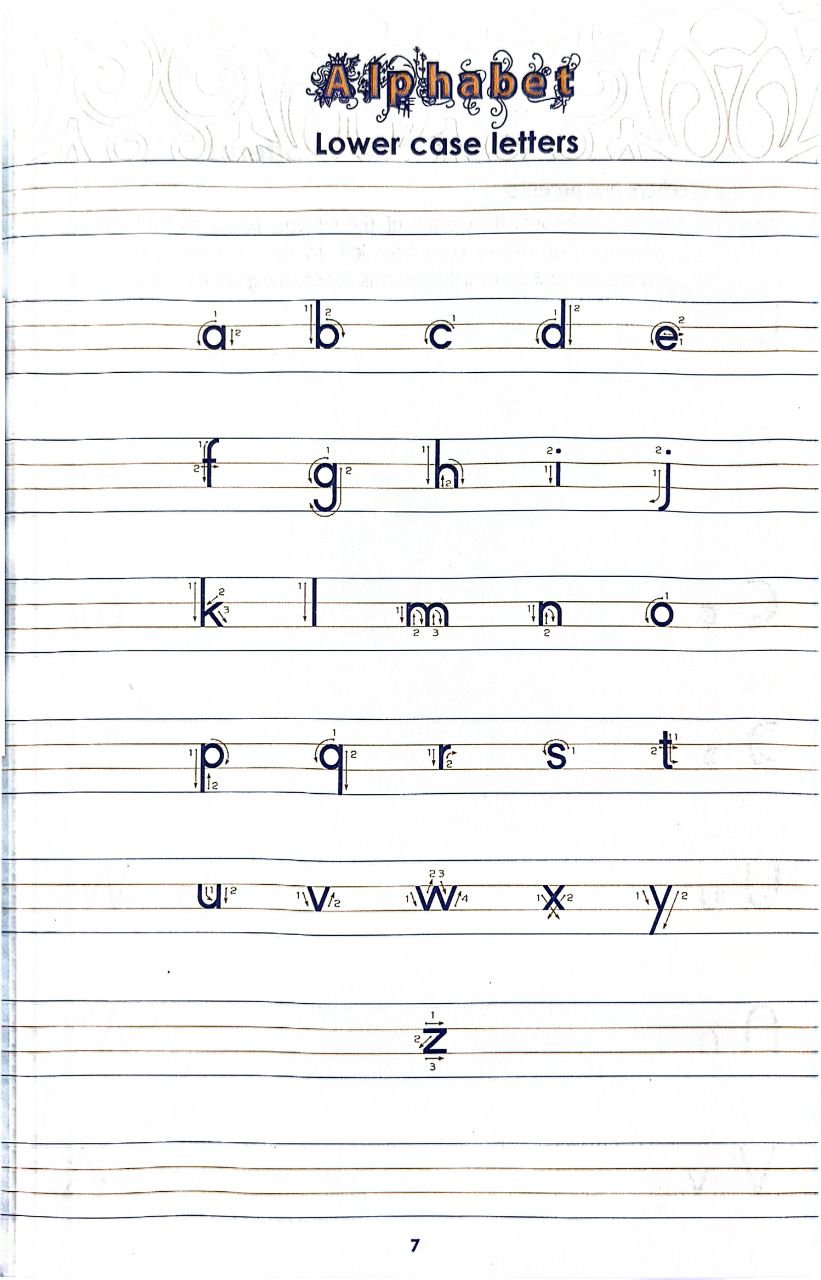 Alphabet
Lower case letters
a b c d e
f g h i j
k l m n o
p q r s t
u v w x y
z
7